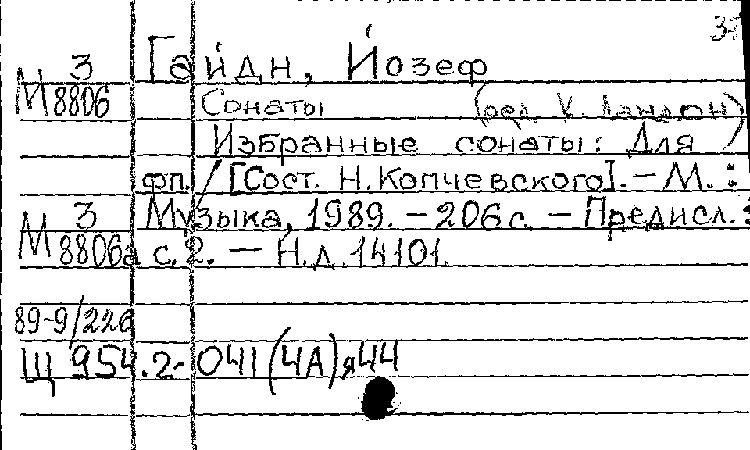 3-
З Гайдн, Йозеф
М 8806 Сонаты (ред. К. Ландон)
Избранные сонаты: Для
фп. / [Сост. Н. Копчевского]. – М. :
З Музыка, 1989. – 206 с. – Предисл.:
М 8806а с. 2. – Н.д. 14101.
89-9/226
Щ 954.2-041(4А)я44